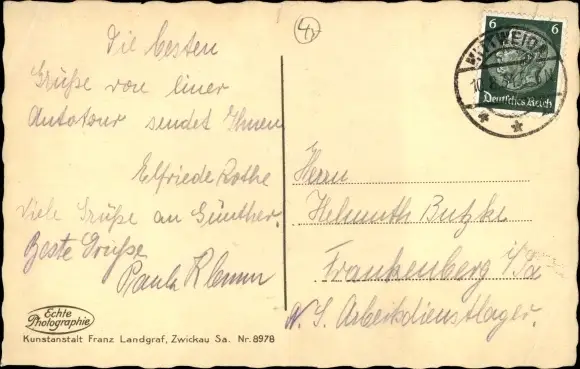 Die besten
Grüße von einer
Autotour sendet Ihnen
Elfriede Rothe
Viele Grüße an Günther.
Beste Grüße
Paula Klemm
Echte
Photographie
Kunstanstalt Franz Landgraf, Zwickau Sa. Nr. 8978
6 6
Deutsches Reich
MITTWEIDA
Herrn
Helmuth Butzke
Frankenberg i/Sa
N. S. Arbeitsdienstlager.